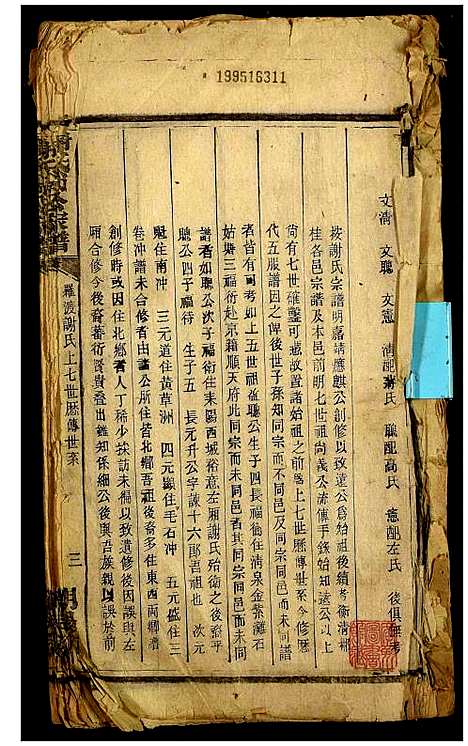 199516311
文清 文聰 文憲 清配蕭氏 聰配高氏 憲配左氏 後俱無考
按謝氏宗譜明嘉靖應麒公創修以致遠公為始祖後續考衡清郴
桂各邑宗譜及本邑前明七世祖尚義公流傳手錄始知遠公以上
尚有七世確鑿可據故置諸始祖之前爲上七世歷傳世系今修闕
代五服譜因之俾後世子孫知同宗而不同邑及同宗同邑而未同譜
者皆有可考如上五世祖益聰公生子四長福衙住清泉金紫灘石
姑塘三福衍赴京籍順天府此同宗而未同邑者其同宗同邑而未同
譜者如聰公次子福衍住耒陽西城裕意左厢謝氏始衛之後裔平
聰公四子福待 生子五 長元升公字諫十六郎吾祖也 次元
魁住南冲 三元道住黄草洲 四元顯住毛石冲 五元盛住三
卷冲譜未合修者由諫公所住皆北鄉吾祖後裔多住東西兩鄉譜
創修時或因住北鄉者人丁稀少採訪未徧以致遺修後因誤與左
厢合修今後裔蕃衍賢貴叠出鑑知係細公後與吾族親以誤於前
羅渡謝氏上七世歷傳世系
三